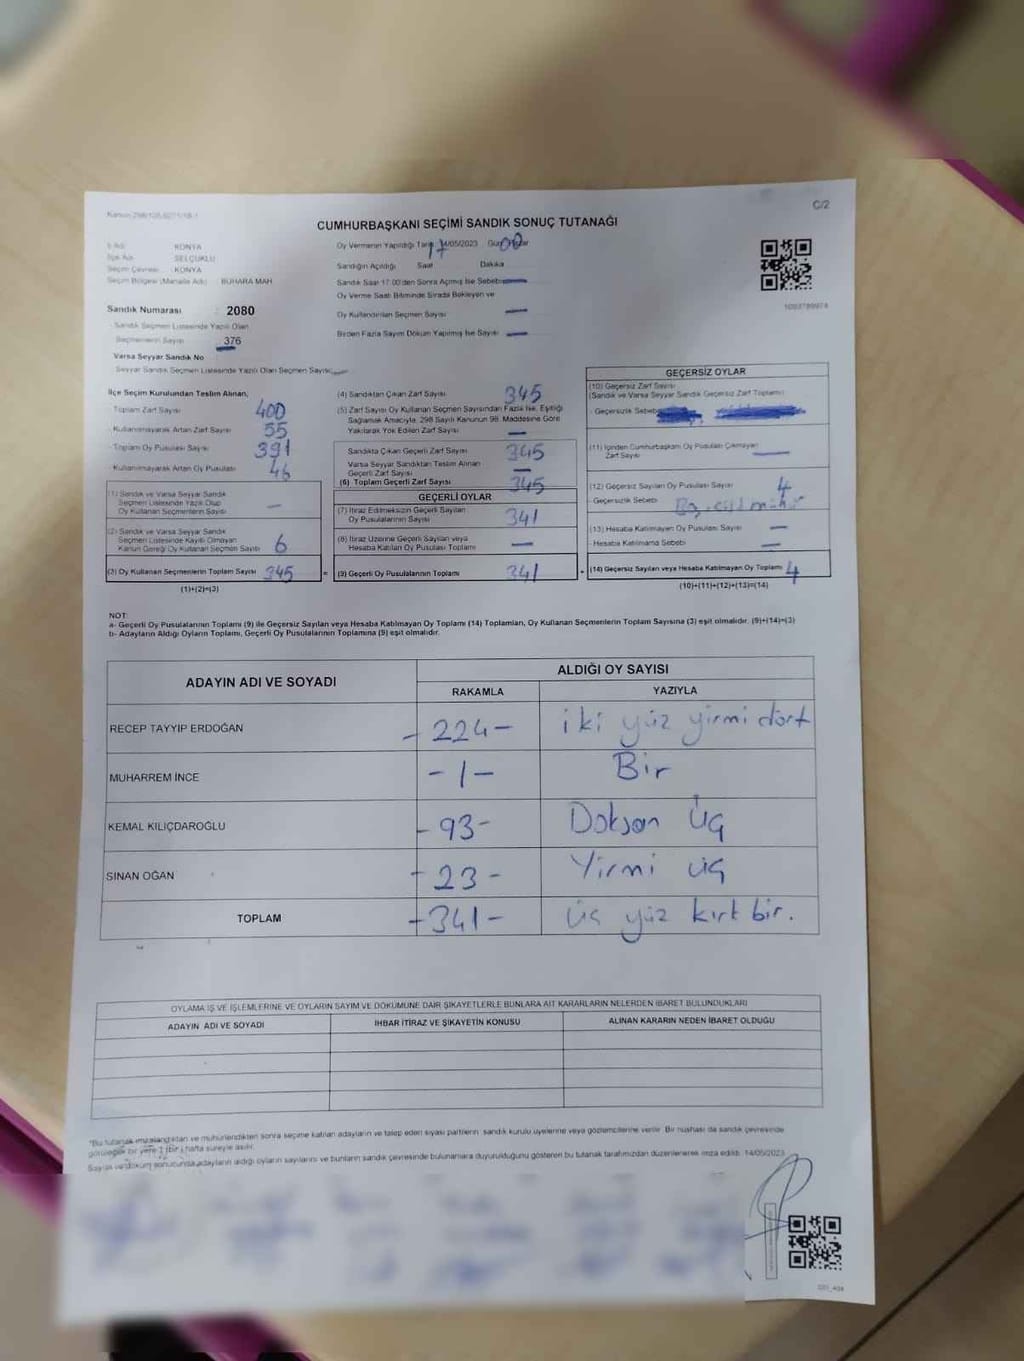 C/2
CUMHURBAŞKANI SEÇİMİ SANDIK SONUÇ TUTANAĞI
İl Adı KONYA
İlçe Adı SELÇUKLU
Seçim Çevresi KONYA
Seçim Bölgesi (Mahalle Adı) BUHARA MAH
Sandık Numarası 2080
Sandık Seçmen Listesinde Yazılı Olan
Seçmenlerin Sayısı 376
Varsa Seyyar Sandık No
Seyyar Sandık Seçmen Listesinde Yazılı Olan Seçmen Sayısı
Oy Vermenin Yapıldığı 14/05/2023
Sandığın Açıldığı Saat 17 Dakika 00
Sandık Saat 17.00'den Sonra Açılmış İse Sebebi
Oy Verme Saati Bitiminde Sırada Bekleyen ve
Oy Kullandırılan Seçmen Sayısı
Birden Fazla Sayım Döküm Yapılmış İse Sayısı
İlçe Seçim Kurulundan Teslim Alınan;
Toplam Zarf Sayısı 400
Kullanılmayarak Artan Zarf Sayısı 55
Toplam Oy Pusulası Sayısı 391
Kullanılmayarak Artan Oy Pusulası 46
(1) Sandık ve Varsa Seyyar Sandık
Seçmen Listesinde Yazılı Olup
Oy Kullanan Seçmenlerin Sayısı -
(2) Sandık ve Varsa Seyyar Sandık
Seçmen Listesinde Kayıtlı Olmayan
Kanun Gereği Oy Kullanan Seçmen Sayısı 6
(3) Oy Kullanan Seçmenlerin Toplam Sayısı 345
(1)+(2)=(3)
(4) Sandıktan Çıkan Zarf Sayısı 345
(5) Zarf Sayısı Oy Kullanan Seçmen Sayısından Fazla İse, Eşitliği
Sağlamak Amacıyla, 298 Sayılı Kanunun 98. Maddesine Göre
Yakılarak Yok Edilen Zarf Sayısı -
Sandıkta Çıkan Geçerli Zarf Sayısı 345
Varsa Seyyar Sandıktan Teslim Alınan
Geçerli Zarf Sayısı -
(6) Toplam Geçerli Zarf Sayısı 345
GEÇERLİ OYLAR
(7) İtiraz Edilmeksizin Geçerli Sayılan
Oy Pusulalarının Sayısı 341
(8) İtiraz Üzerine Geçerli Sayılan veya
Hesaba Katılan Oy Pusulası Toplamı -
= (9) Geçerli Oy Pusulalarının Toplamı 341
GEÇERSİZ OYLAR
(10) Geçersiz Zarf Sayısı
(Sandık ve Varsa Seyyar Sandık Geçersiz Zarf Toplamı)
- Geçersizlik Sebebi
(11) İçinden Cumhurbaşkanı Oy Pusulası Çıkmayan
Zarf Sayısı -
(12) Geçersiz Sayılan Oy Pusulası Sayısı 4
- Geçersizlik Sebebi
(13) Hesaba Katılmayan Oy Pusulası Sayısı -
- Hesaba Katılmama Sebebi -
(14) Geçersiz Sayılan veya Hesaba Katılmayan Oy Toplamı 4
(10)+(11)+(12)+(13)=(14)
NOT:
a- Geçerli Oy Pusulalarının Toplamı (9) ile Geçersiz Sayılan veya Hesaba Katılmayan Oy Toplamı (14) Toplamları, Oy Kullanan Seçmenlerin Toplam Sayısına (3) eşit olmalıdır. (9)+(14)=(3)
b- Adayların Aldığı Oyların Toplamı, Geçerli Oy Pusulalarının Toplamına (9) eşit olmalıdır.
ADAYIN ADI VE SOYADI
ALDIĞI OY SAYISI
RAKAMLA YAZIYLA
RECEP TAYYİP ERDOĞAN - 224 - iki yüz yirmi dört
MUHARREM İNCE - 1 - Bir
KEMAL KILIÇDAROĞLU - 93 - Doksan Üç
SİNAN OĞAN - 23 - Yirmi üç
TOPLAM - 341 - üç yüz kırk bir.
OYLAMA İŞ VE İŞLEMLERİNE VE OYLARIN SAYIM VE DÖKÜMÜNE DAİR ŞİKAYETLERLE BUNLARA AİT KARARLARIN NELERDEN İBARET BULUNDUKLARI
ADAYIN ADI VE SOYADI İHBAR İTİRAZ VE ŞİKAYETİN KONUSU ALINAN KARARIN NEDEN İBARET OLDUĞU
*Bu tutanak imzalandıktan ve mühürlendikten sonra seçime katılan adayların ve talep eden siyasi partilerin sandık kurulu üyelerine veya gözlemcilerine verilir. Bir nüshası da sandık çevresinde
görülecek bir yere 1 (bir) hafta süreyle asılır.
Sayım ve döküm sonucunda adayların aldığı oyların sayılarını ve bunların sandık çevresinde bulunanlara duyurulduğunu gösteren bu tutanak tarafımızdan düzenlenerek imza edildi. 14/05/2023